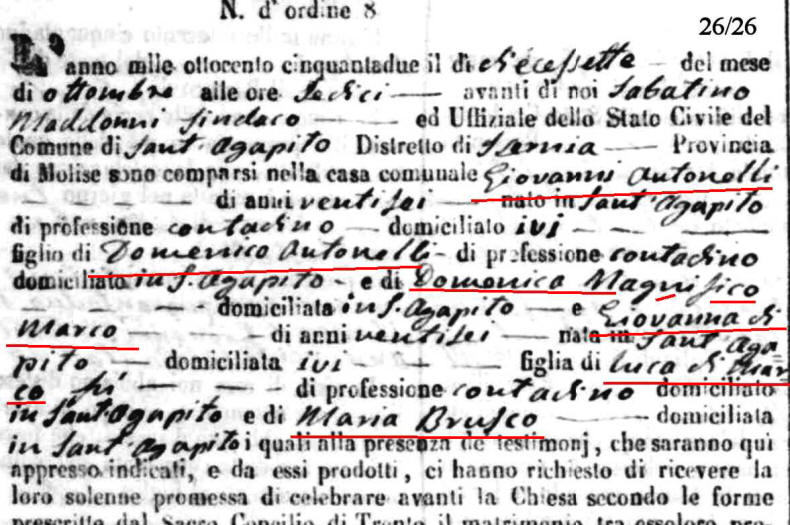 N. d'ordine 8
26/26
L'anno mille ottocento cinquantadue il dì diecessette del mese
di ottombre alle ore sedici avanti di noi Sabatino
Maddonni Sindaco ed Uffiziale dello Stato Civile del
Comune di Sant Agapito Distretto di Isernia Provincia
di Molise sono comparsi nella casa comunale Giovanni Antonelli
di anni ventisei nato in Sant'Agapito
di professione contadino domiciliato ivi
figlio di Domenico Antonelli di professione contadino
domiciliato in S. Agapito e di Domenica Magnifico
domiciliata in S. Agapito e Giovanna di
Marco di anni ventisei nata in Sant Aga
pito domiciliata ivi figlia di Luca di Mar
co di professione contadino domiciliato
in Sant'Agapito e di Maria Brusco domiciliata
in Sant Agapito i quali alla presenza de' testimonj, che saranno qui
appresso indicati, e da essi prodotti, ci hanno richiesto di ricevere la
loro solenne promessa di celebrare avanti la Chiesa secondo le forme
prescritte dal Sacro Concilio di Trento il matrimonio tra essoloro pro-